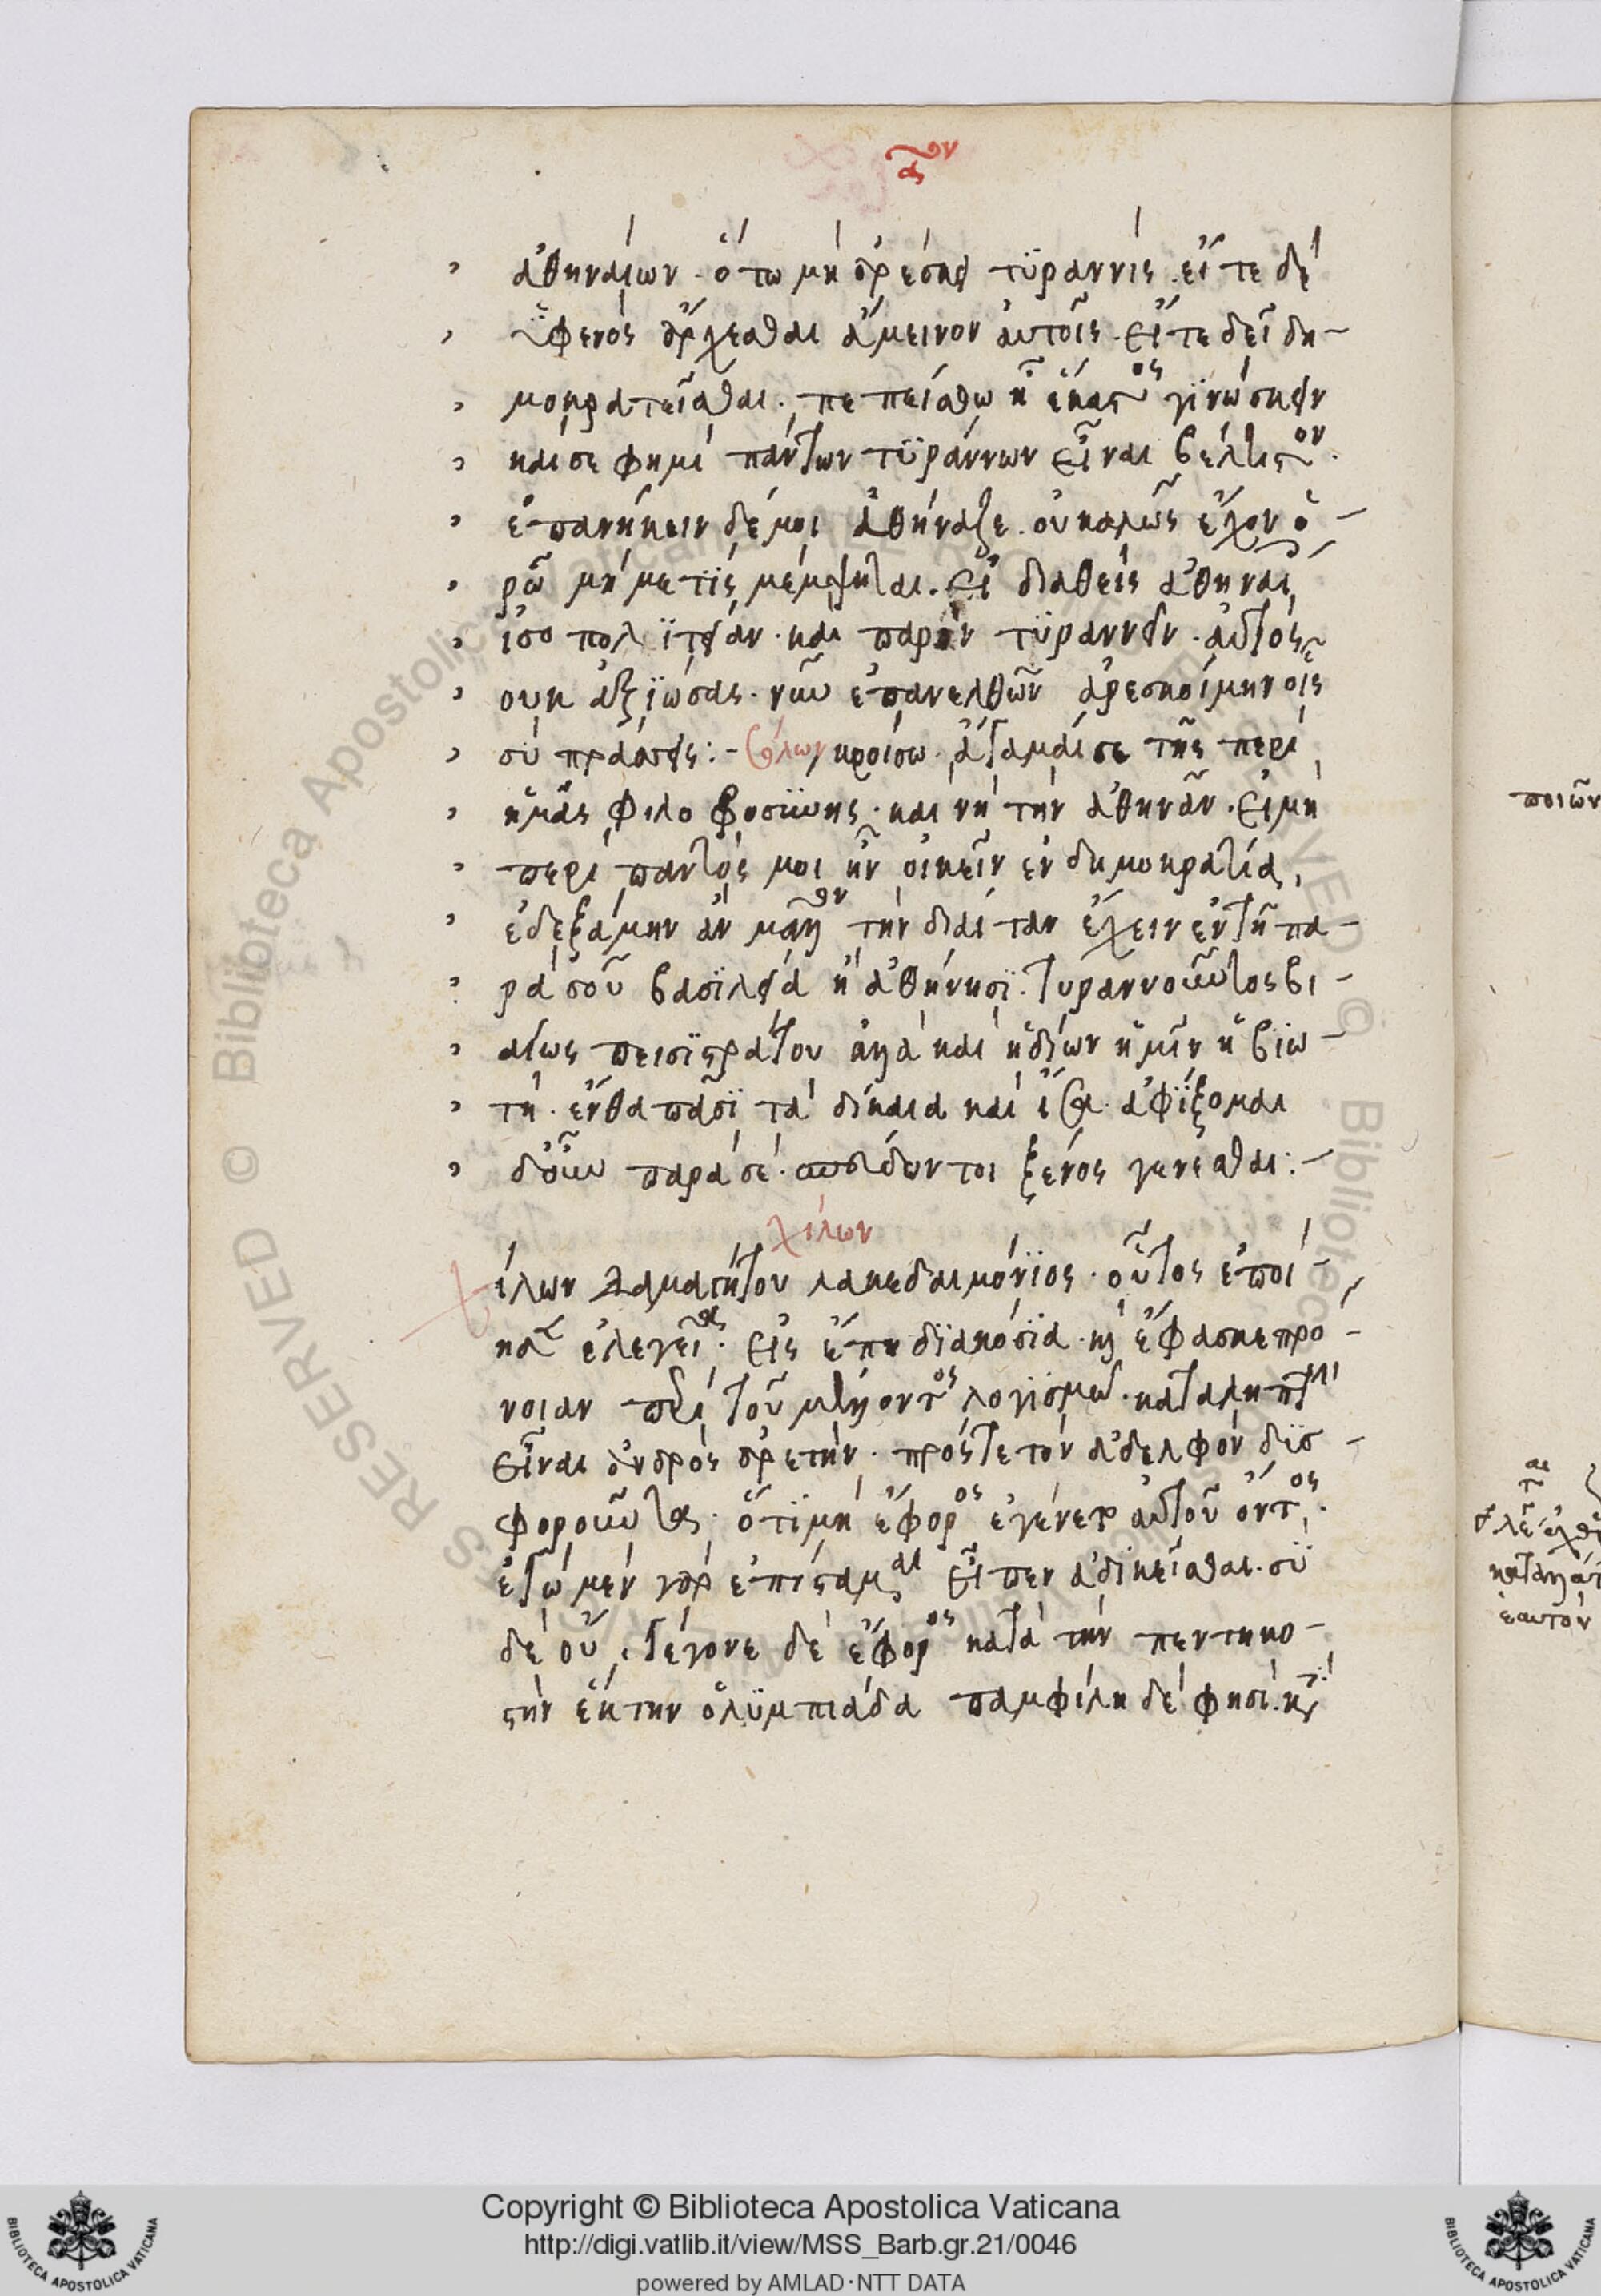 αον
ἀθηναίων. ὅτω μὴ ἀρέσκει τϋραννίς. εἴ τε δέ
ὑφενὸς ἄρχεσθαι ἄμεινον ἀυτοῖς. εἴτε δεῖ δη-
μοκρατεῖσθαι. πεπείσθω ᾗ ἕκαστος γϊνώσκειν
καὶ σε φημὶ πάντων τϋράννων εἶναι βέλτιστον.
ἐπανήκειν δέ μοι ἀθήναζε. οὐ καλῶς ἔχον ὁ-
ρῶ μή με τϊς μέμψηται. εἰ διαθεὶς ἀθηναί
ἰσοπολϊτείαν. καὶ παρὸν τϋραννεῖν. ἀυτὸς
ουκ ἀξϊώσας. νῦν ἐπανελθὼν ἀρεσκοίμην οἷς
σὺ πράσσεις:- σόλων κροίσω. ἄγαμαί σε τῆς περὶ
ἡμᾶς φιλοφροσϋνης. καὶ νὴ τὴν ἀθηνᾶν. εἰ μὴ
περὶ παντός μοι ἦν οἰκεῖν ἐν δημοκρατία,
ἐδεξάμην ἂν μᾶλλον τὴν δίαιταν ἔχειν ἐν τῆ πα-
ρὰ σοῦ βασϊλεία ἢ ἀθήνησϊ. τυραννοῦντος βι-
αίως πεισϊστράτου ἀλλὰ καὶ ἡδίων ἡμῖν ἡ βϊω-
τὴ. ἔνθα πᾶσϊ τὰ δίκαια καὶ ἴσα. ἀφΐξομαι
δ' οὖν παρὰ σὲ. σπεύδων τοι ξένος γενέσθαι:-
χίλων
ίλων δαμαγήτου λακεδαιμόνϊος. οὗτος ἐποί-
ησεν ἐλεγεῖα. εἰς ἔπη δϊακόσϊα. καὶ ἔφασκε πρό-
νοιαν περὶ τοῦ μέλλοντος λογϊσμῶ. καταληπτὴν
εἶναι ἀνδρὸς ἀρετὴν. πρός τε τὸν ἀδελφὸν δϋσ-
φοροῦντα. ὅτϊ μὴ ἔφορος ἐγένετο ἀυτοῦ ὄντος.
ἐγὼ μὲν γὰρ ἐπίσταμαι εἶπεν ἀδϊκεῖσθαι. σϋ
δὲ οὔ. γέγονε δὲ ἔφορος κατὰ τὴν πεντηκο-
στὴν ἕκτην ὀλϋμπιάδα παμφίλη δέ φησι. κατὰ
ποιῶν
ἑαυτὸν
Copyright © Biblioteca Apostolica Vaticana
http://digi.vatlib.it/view/MSS_Barb.gr.21/0046
powered by AMLAD·NTT DATA